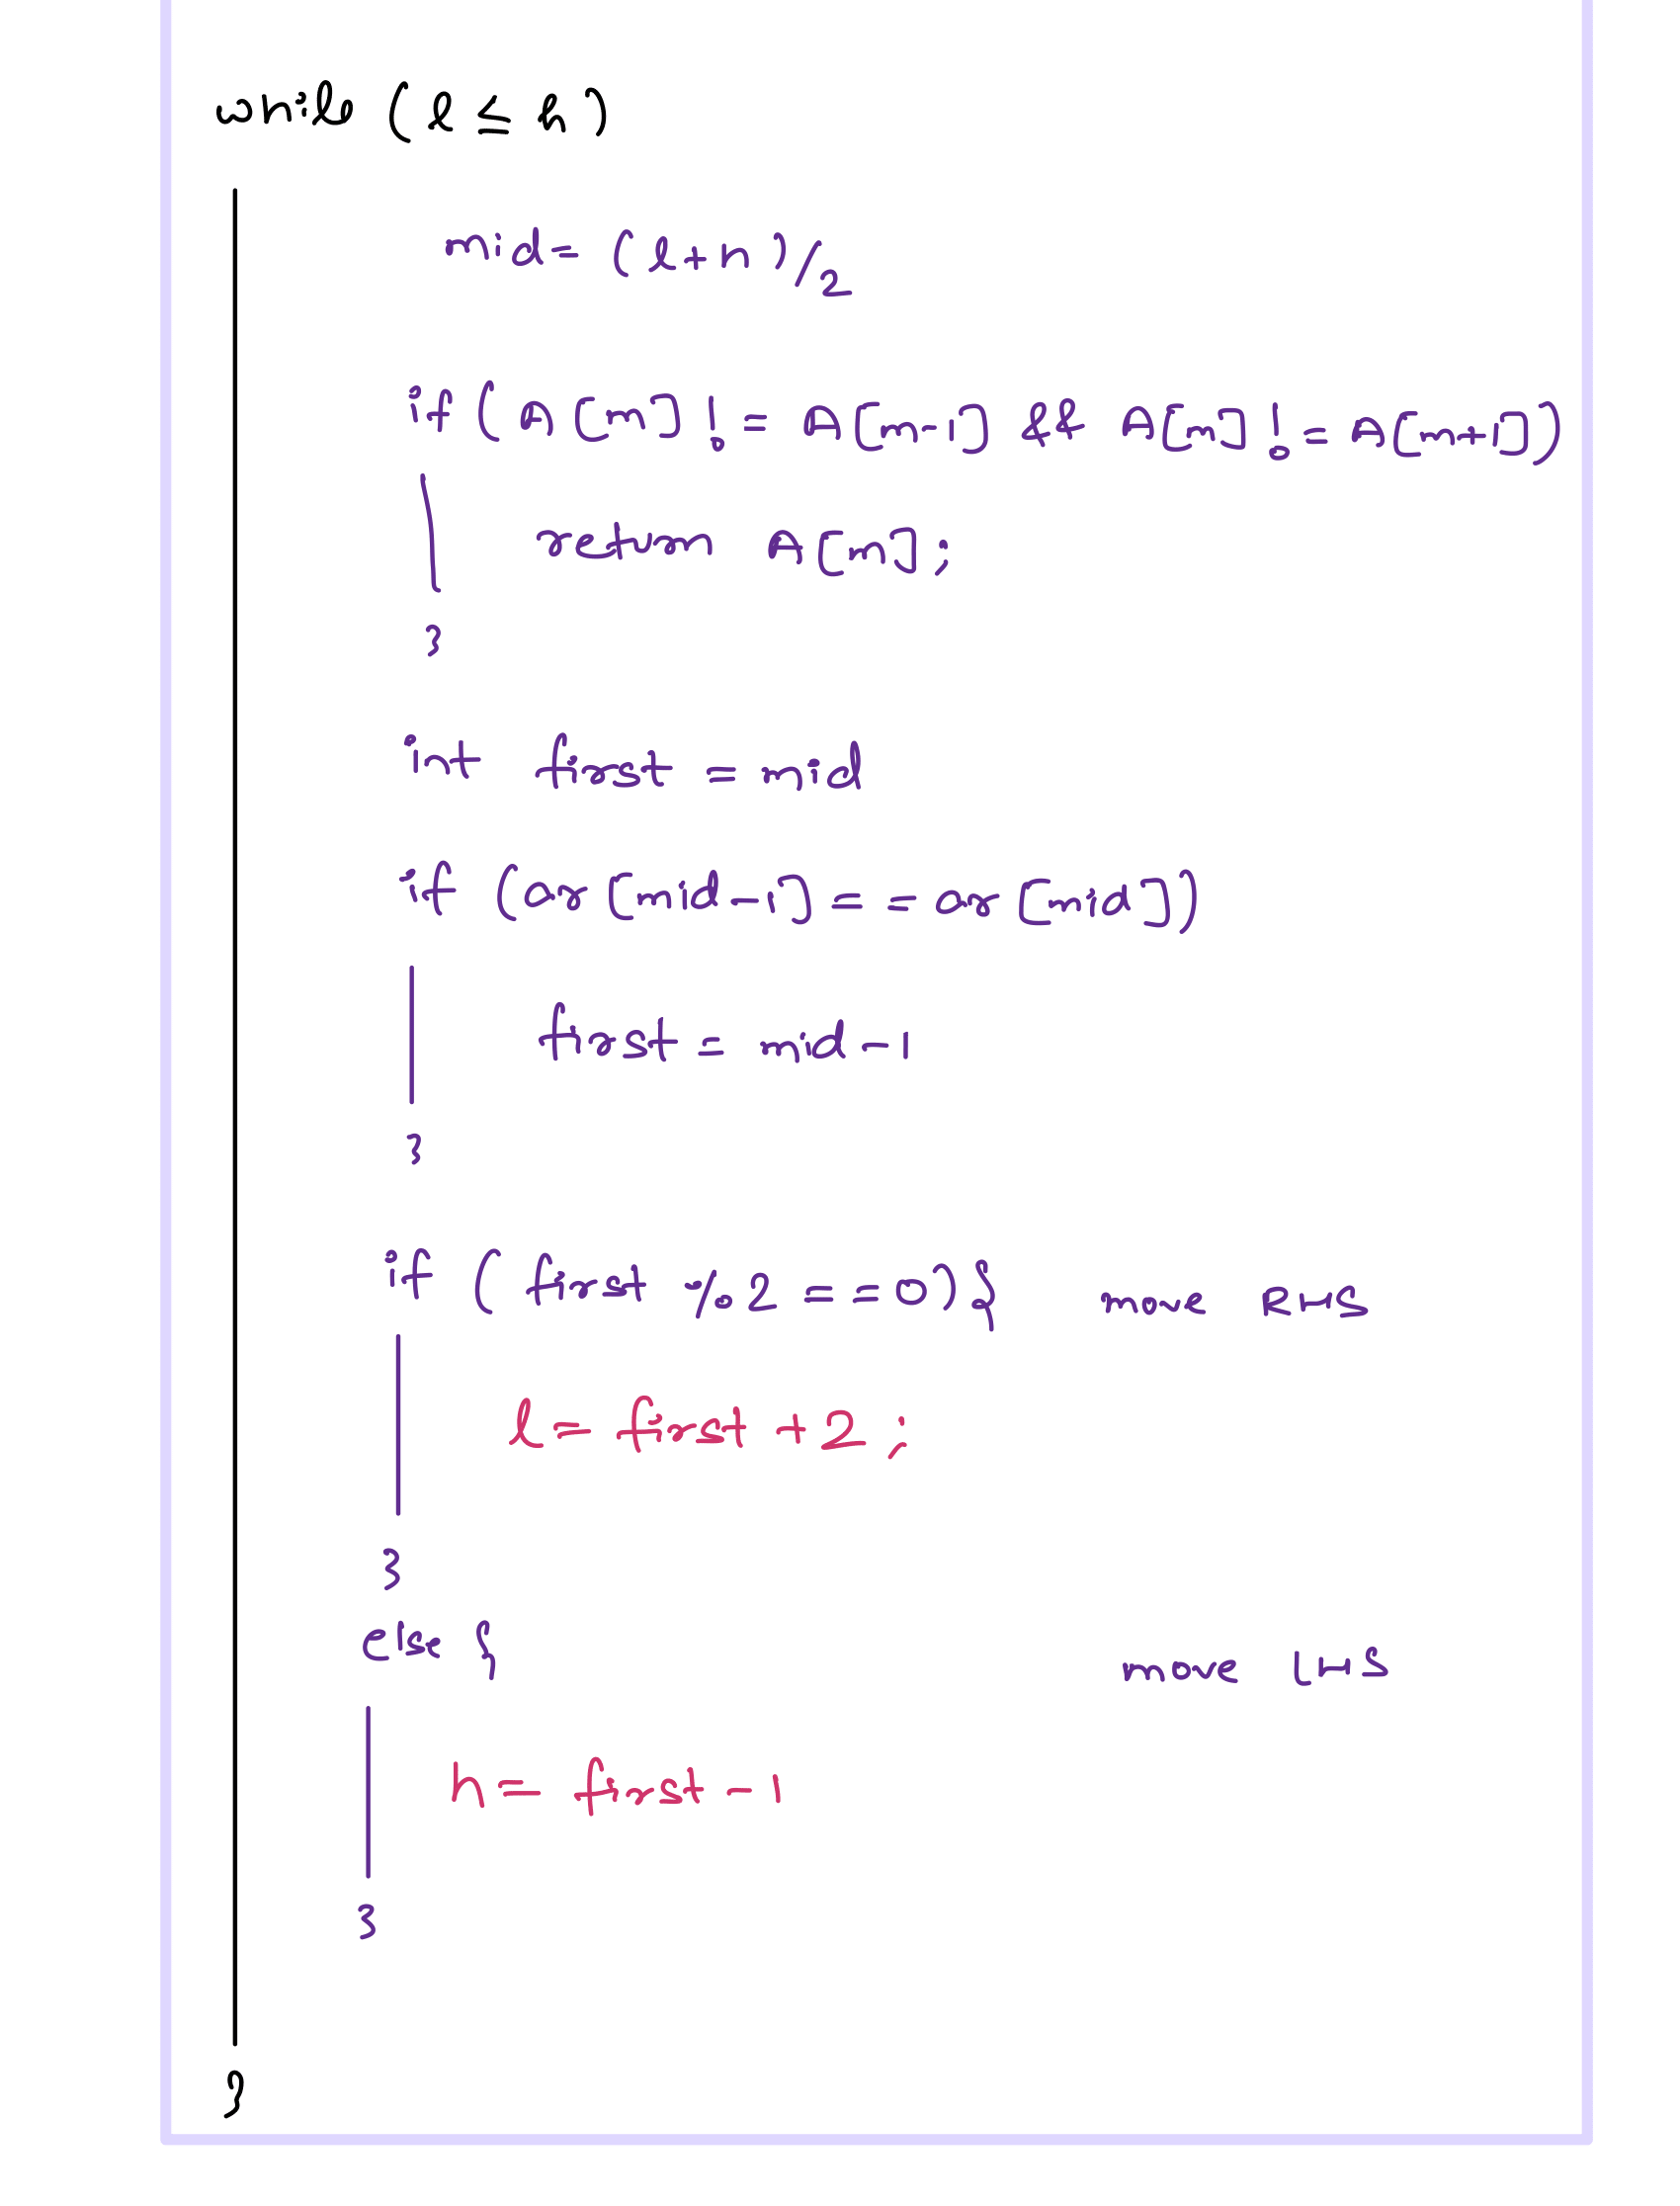 while (l ≤ h)
mid = (l+h)/2
if (A[m] != A[m-1] && A[m] != A[m+1])
return A[m];
}
int first = mid
if (ar[mid-1] == ar[mid])
first = mid-1
}
if (first % 2 == 0) { move RHS
l = first + 2;
}
else { move LHS
h = first - 1
}
}